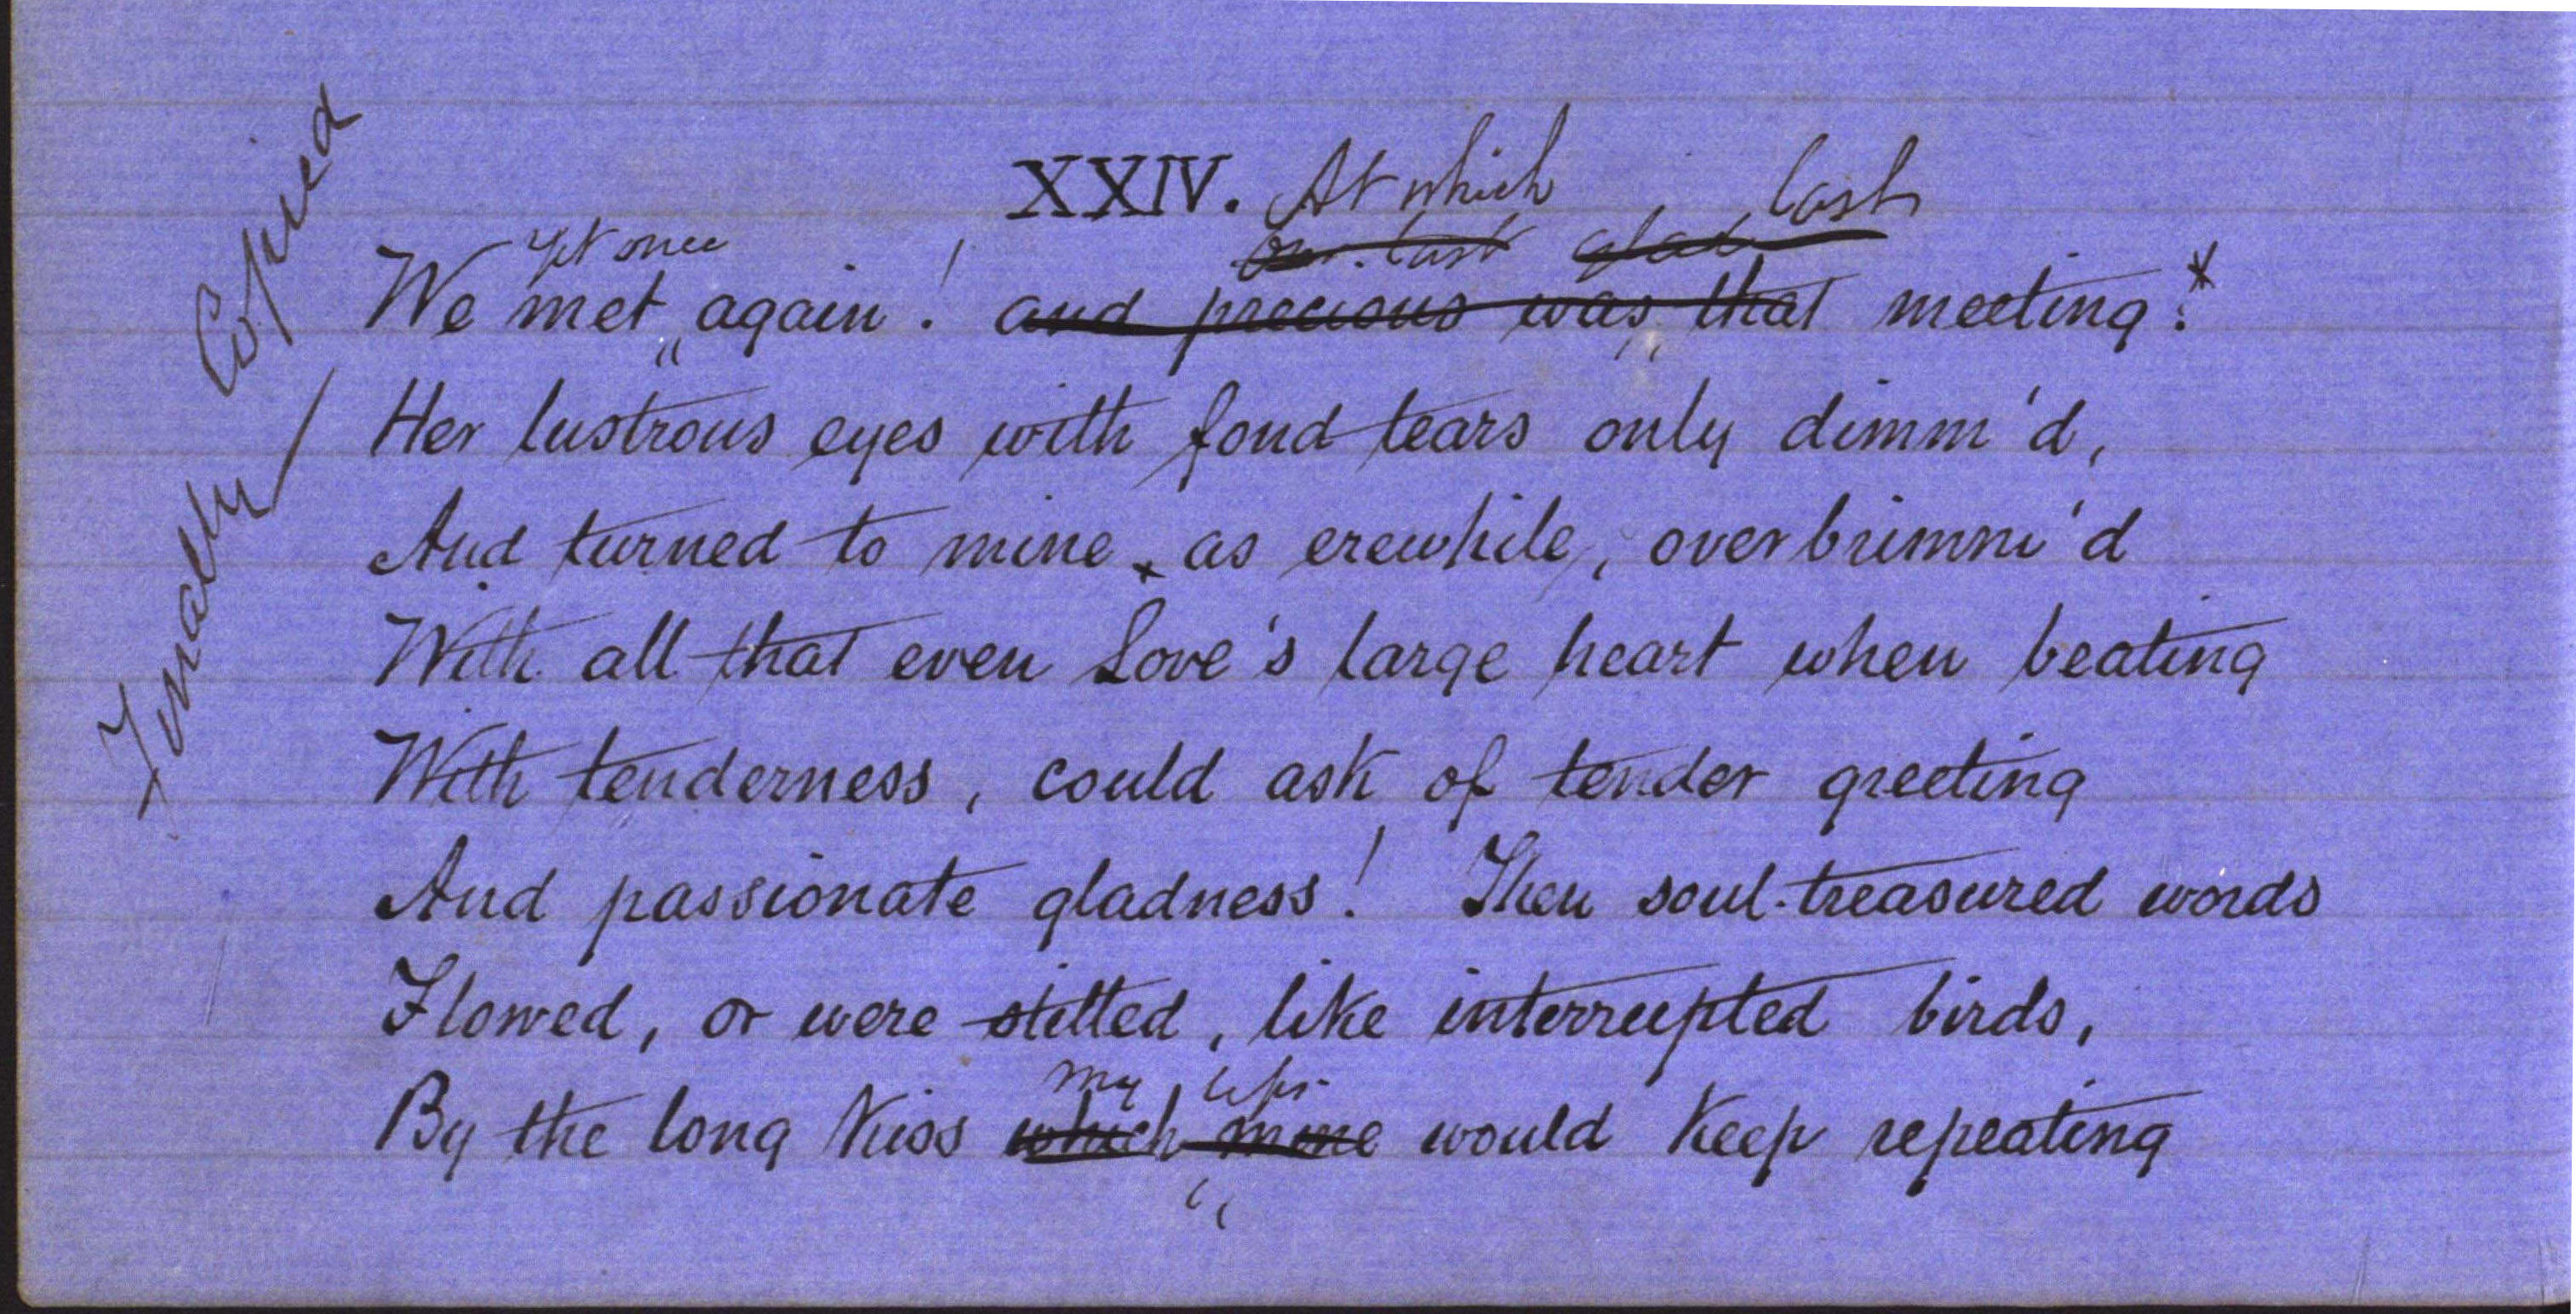 Finally Copied
XXIV. At which last
yet once our last glad
We met again! and precious was that meeting!*
Her lustrous eyes with fond tears only dimm'd,
And turned to mine as erewhile, overbrimm'd
With all that even Love's large heart when beating
With tenderness, could ask of tender greeting
And passionate gladness! Then soul-treasured words
Flowed, or were stilled, like interrupted birds,
my lips
By the long kiss which mine would keep repeating